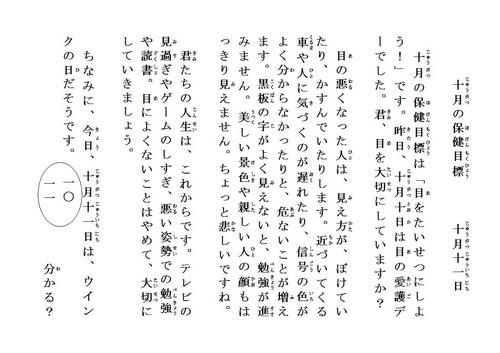 十月の保健目標　十月十一日
十月の保健目標は「目をたいせつにしよ
う！」です。昨日、十月十日は目の愛護デ
ーでした。君、目を大切にしていますか？
目の悪くなった人は、見え方が、ぼけてい
たり、かすんでいたりします。近づいてくる
車や人に気づくのが遅れたり、信号の色が
よく分からなかったりと、危ないことが増え
ます。黒板の字がよく見えないと、勉強が進
みません。美しい景色や親しい人の顔もは
っきり見えません。ちょっと悲しいですね。
君たちの人生は、これからです。テレビの
見過ぎやゲームのしすぎ、悪い姿勢での勉強
や読書。目によくないことはやめて、大切に
していきましょう。
ちなみに、今日、十月十一日は、ウイン
クの日だそうです。
一〇
一一
分かる？